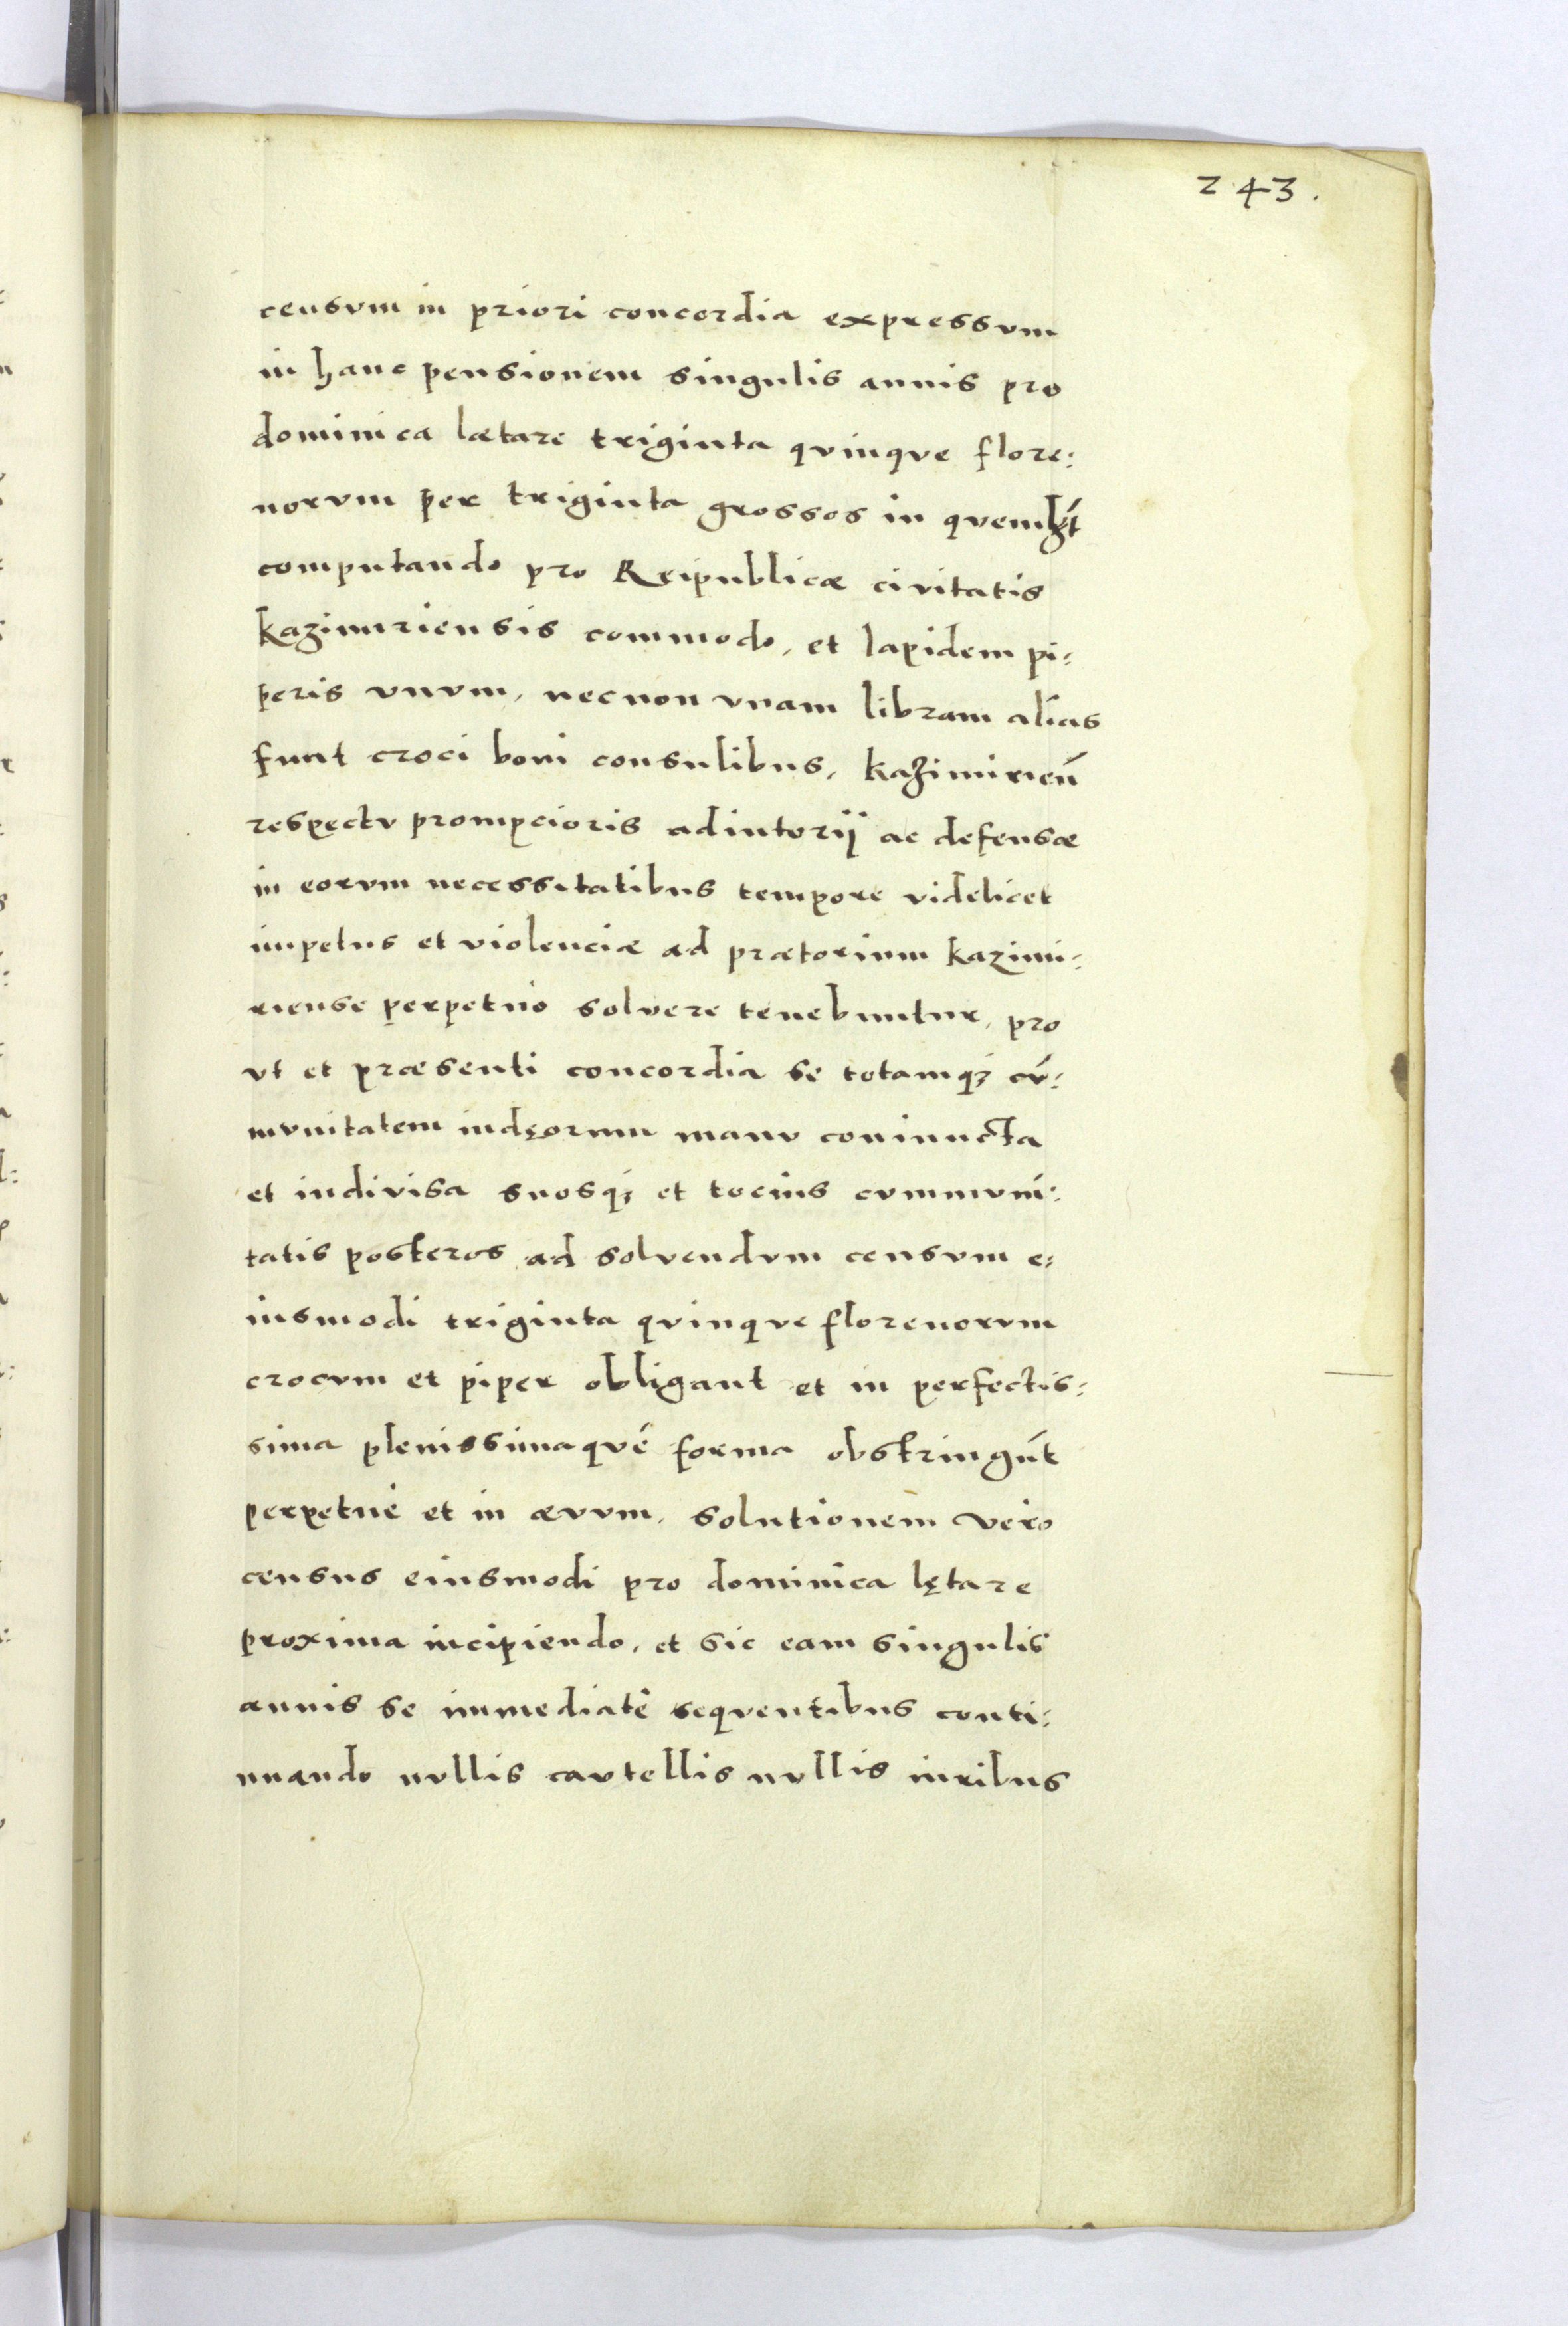 243.
censvm in priori concordia expressvm
in hanc pensionem singulis annis pro
dominica lætare triginta qvinqve flore:
norvm per triginta grossos in qvemlȝt
computando pro Reipublicæ civitatis
kazimiriensis commodo, et lapidem pi:
peris vnvm, necnon vnam libram alias
funt croci boni consulibus, kazimirień
respectv prompcioris adiutorij ac defensæ
in eorvm necessitatibus tempore videlicet
impetus et violenciæ ad prætorium kazimi:
riense perpetuo solvere tenebuntur, pro
vt et præsenti concordia se totamqȝ cv́:
mvnitatem iudęorum manv coniuncta
et indivisa suosqȝ et tocius cvmmvni:
tatis posteros ad solvendvm censvm e:
iusmodi triginta qvinqve florenorvm
crocvm et piper obligant et in perfectis:
sima plenissimaqvé forma obstringv́t
perpetuè et in ævvm, solutionem vero
census eiusmodi pro dominica lętare
proxima incipiendo, et sic eam singulis
annis se immediatè seqventibus conti:
nuando nvllis cavtellis nvllis iuribus